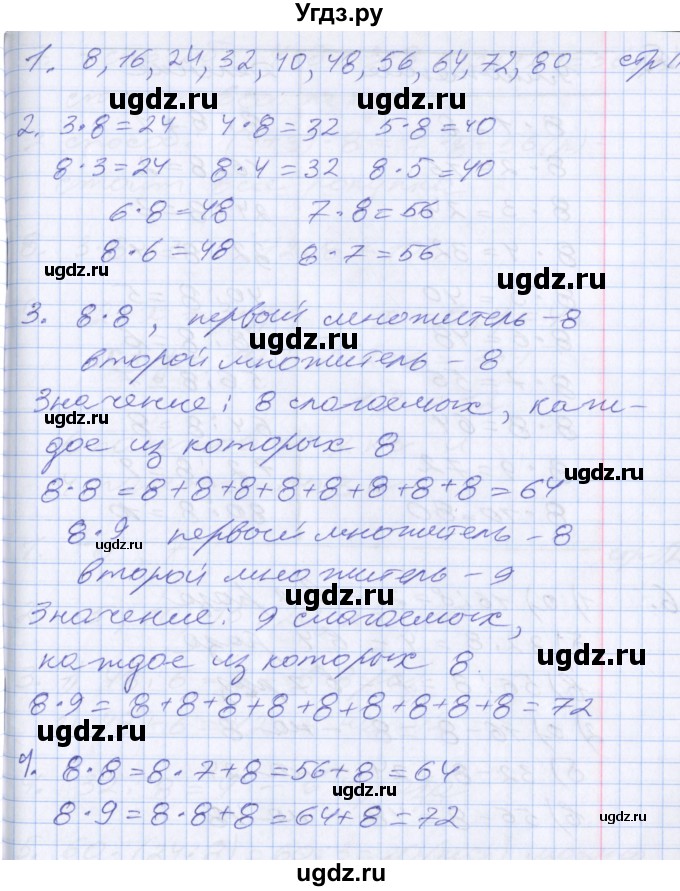 Угдз.ру
1. 8, 16, 24, 32, 40, 48, 56, 64, 72, 80. стр 11
ugdz.ru ugdz.ru
2. 3·8=24 4·8=32 5·8=40
8·3=24 8·4=32 8·5=40
6·8=48 7·8=56
8·6=48 8·7=56
ugdz.ru ugdz.ru
3. 8·8, первый множитель – 8
ugdz.ru
второй множитель – 8
Значение: 8 слагаемых, каж-
ugdz.ru
дое из которых 8
ugdz.ru
8·8=8+8+8+8+8+8+8+8=64
8·9 первый множитель – 8
ugdz.ru
второй множитель – 9
ugdz.ru
Значение: 9 слагаемых,
каждое из которых 8.
ugdz.ru
8·9= 8+8+8+8+8+8+8+8+8=72
ugdz.ru
4. 8·8=8·7+8=56+8=64
ugdz.ru
8·9=8·8+8=64+8=72
ugdz.ru
ugdz.ru